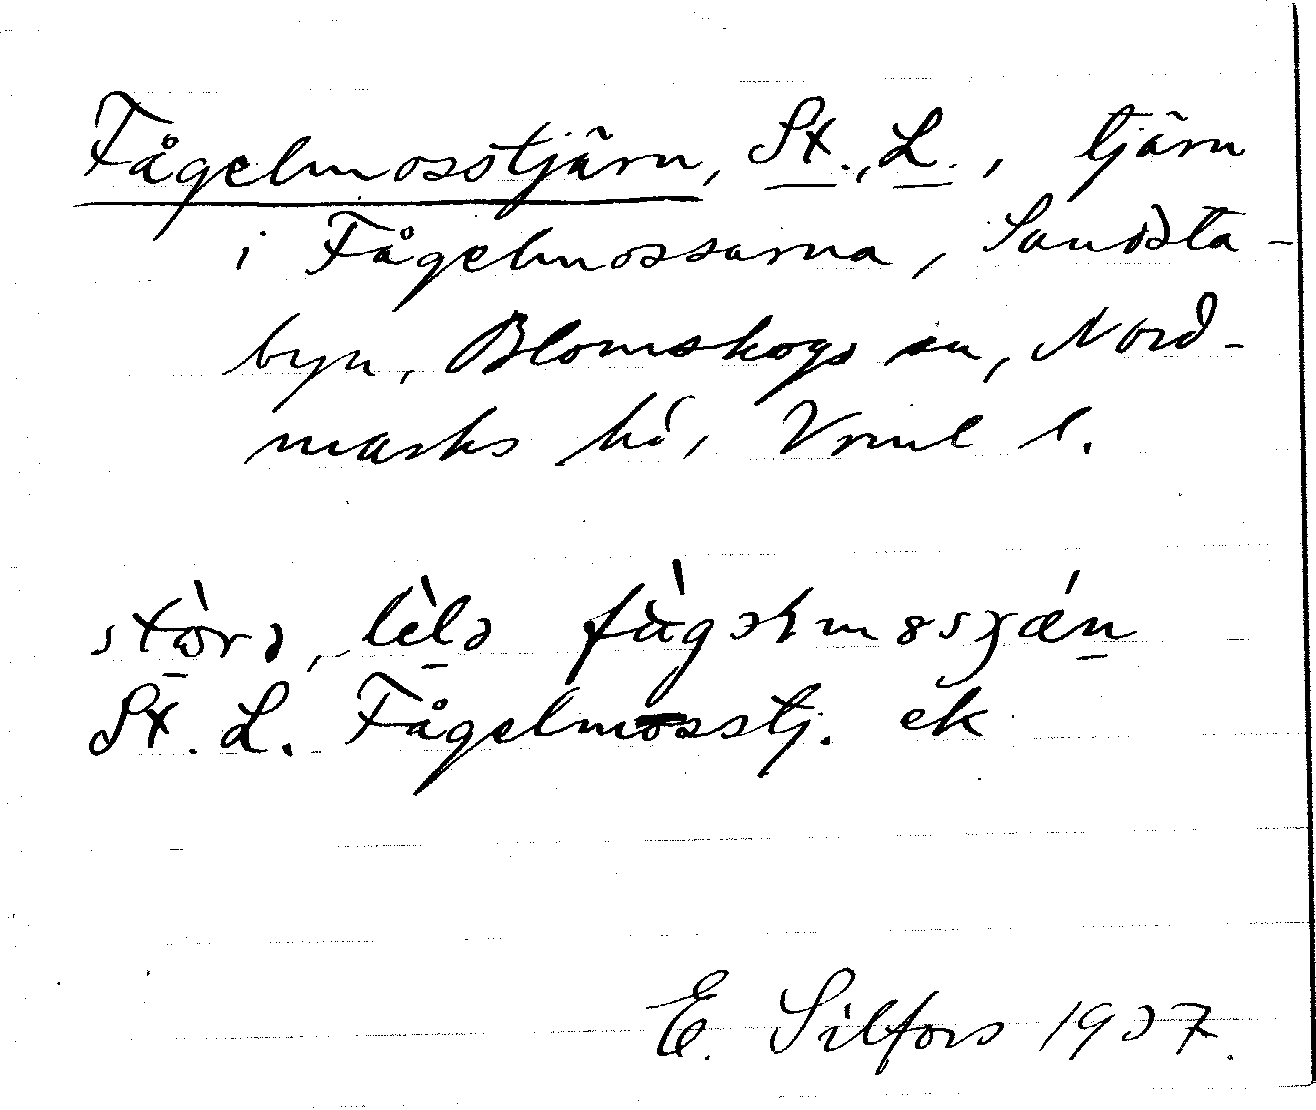 Fågelmosstjärn, St., L., tjärn
i Fågelmossarna, Sandsta-
byn, Blomskogs sn, Nord-
marks hd, Vrml l.
stòrə, lèlə
St. L. Fågelmosstj. ek
E. Silfors 1937.